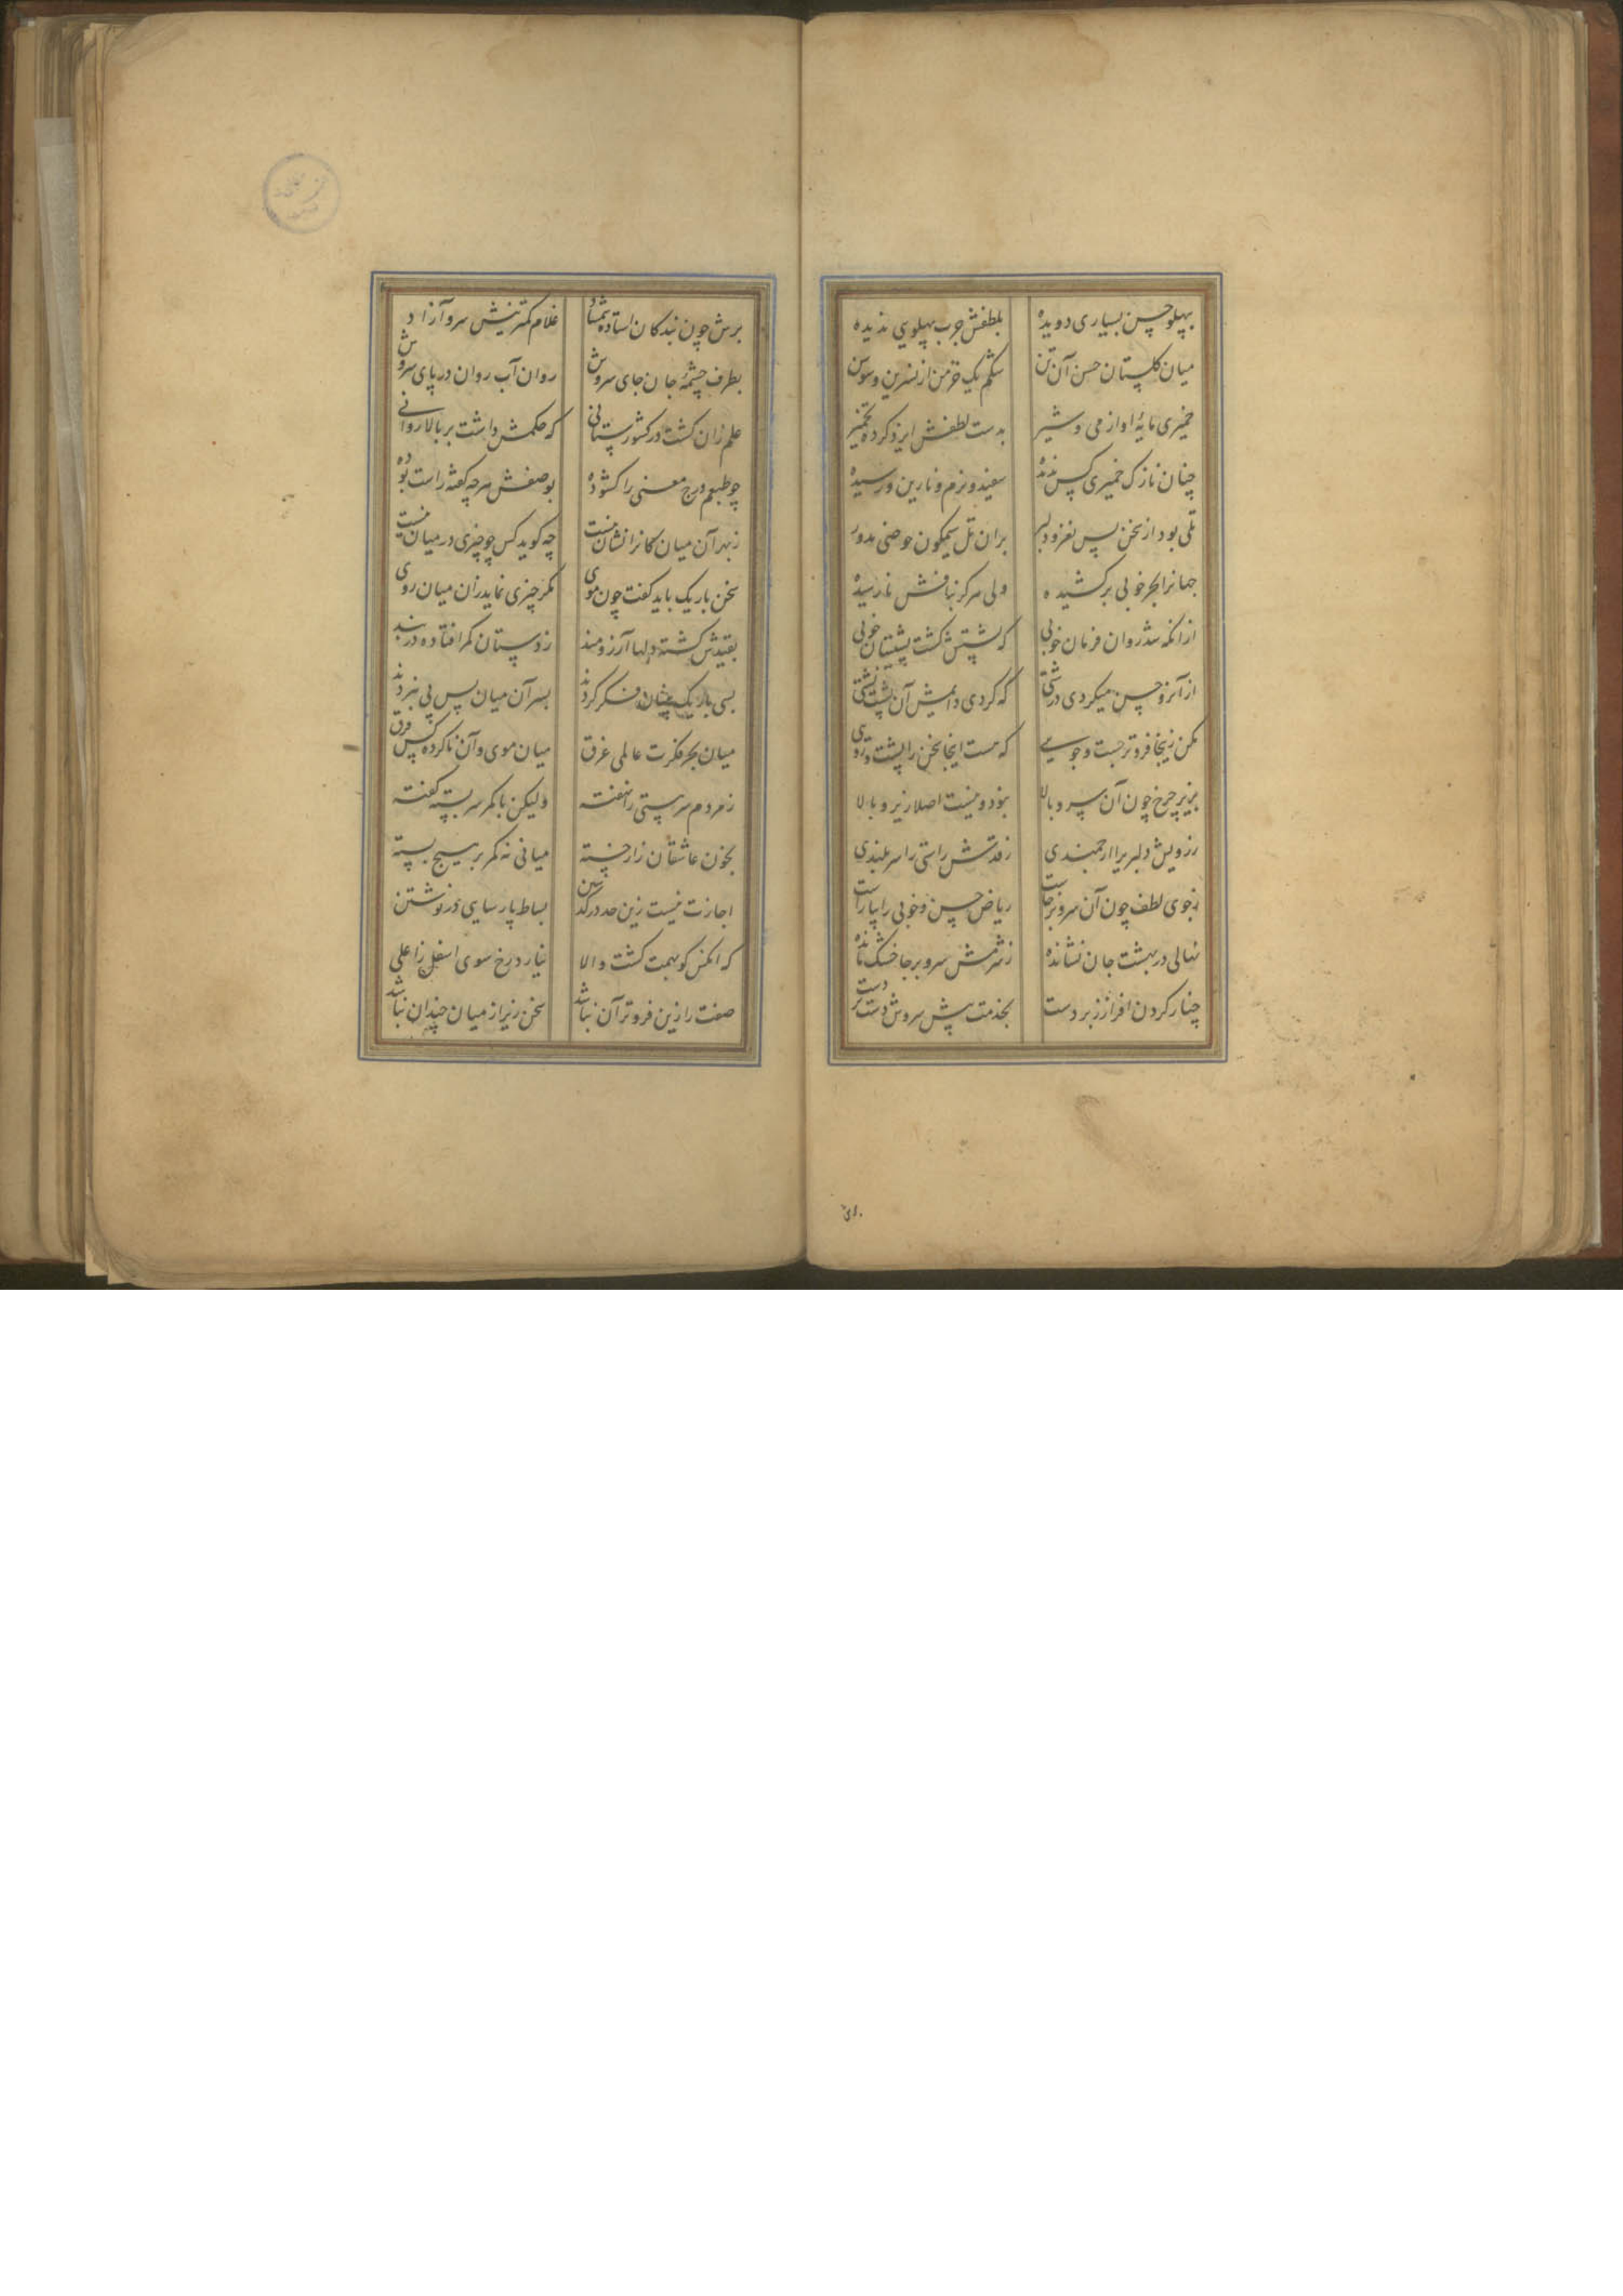 بپهلو حسن بسیاری دویده بلطفش چرب پهلویی ندیده
میان گلستان حسن آن تن شکم یک خرمن از نسرین و سوسن
خمیری مایهٔ او از می و شیر بدست لطفش ایزد کرده تخمیر
چنان نازک خمیری کس ندیده سفید و نرم و نارین و رسیده
تلی بود از سخن بس نغز و دلبر بران تل سیمگون حوضی مدور
جهانرا بحر خوبی برکشیده ولی هرگز بنافش نارسیده
ازانکه شد روان فرمان خوبی که پشتش گشت پشتیبان خوبی
از آنرو حسن میکردی درشتی که کردی دایمش آن پشت پشتی
مکن زینجا فروتر جست و جویی که هست اینجا سخن را پشت و رویی
بزیر چرخ چون آن سرو بالا نبود و نیست اصلا زیر و بالا
ز رویش دلبریرا ارجمندی ز قدش راستی را سربلندی
ز جوی لطف چون آن سرو برخاست ریاض حسن و خوبی را بیاراست
نهالی در بهشت جان نشانده ز شرمش سرو برجا خشک مانده
چنار گردن افراز زبردست بخدمت پیش سروش دست بر دست
برش چون بندگان استاده شمشاد غلام کمترینش سرو آزاد
بطرف چشمهٔ جان جای سروش روان آب روان در پای سروش
علم زان گشت در کشورستانی که حکمش داشت بر بالا روانی
چو طبعم درج معنی را گشوده بوصفش هرچه گفته راست بوده
ز بهر آن میان کانرا نشان نیست چه گوید کس چو چیزی در میان نیست
سخن باریک باید گفت چون موی مگر چیزی نماید زان میان روی
بقیدش گشته دلها آرزومند ز دستان کمر افتاده در بند
بسی باریک بینان فکر کردند بسر آن میان پس پی نبردند
میان بحر فکرت عالمی غرق میان موی و آن ناکرده کس فرق
ز مردم سر هستی را نهفته ولیکن با کمر سربسته گفته
بخون عاشقان زار خسته میانی نه کمر بر هیچ بسته
اجازت نیست زین حد درگذشتن بساط پارسایی درنوشتن
که آنکس کو بهمت گشت والا نیارد رخ سوی اسفل ز اعلی
صفت را زین فروتر آن نباشد سخن زیر از میان چندان نباشد